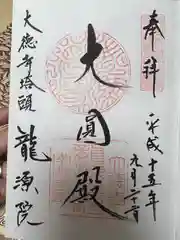 奉拝
平成十五年
九月二十一日
大圓殿
大徳寺塔頭
龍源院